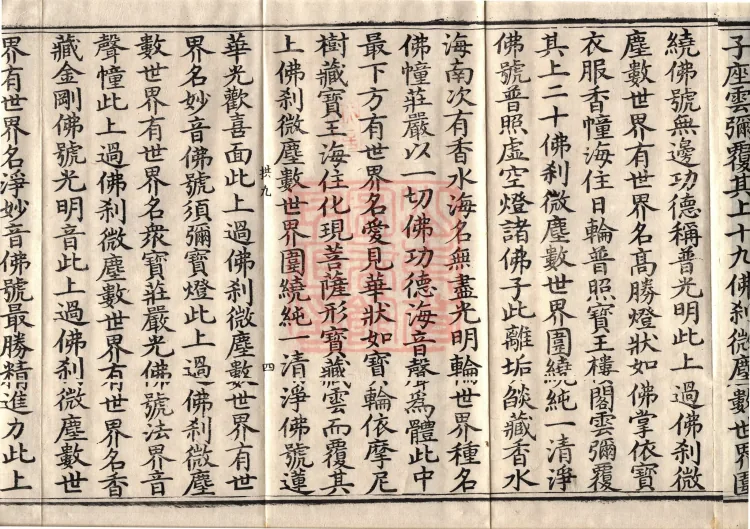 子座雲彌覆其上十九佛刹微塵數世界圍
繞佛號無邊功德稱普光明此上過佛刹微
塵數世界有世界名高勝燈狀如佛掌依寶
衣服香幢海住日輪普照寶王樓閣雲彌覆
其上二十佛刹微塵數世界圍繞純一清淨
佛號普照虛空燈諸佛子此離垢燄藏香水
海南次有香水海名無盡光明輪世界種名
佛幢莊嚴以一切佛功德海音聲爲體此中
最下方有世界名愛見華狀如寶輪依摩尼
樹藏寶王海住化現菩薩形寶藏雲而覆其
上佛刹微塵數世界圍繞純一清淨佛號蓮
拱九
四
華光歡喜面此上過佛刹微塵數世界有世
界名妙音佛號須彌寶燈此上過佛刹微塵
數世界有世界名衆寶莊嚴光佛號法界音
聲幢此上過佛刹微塵數世界有世界名香
藏金剛佛號光明音此上過佛刹微塵數世
界有世界名淨妙音佛號最勝精進力此上